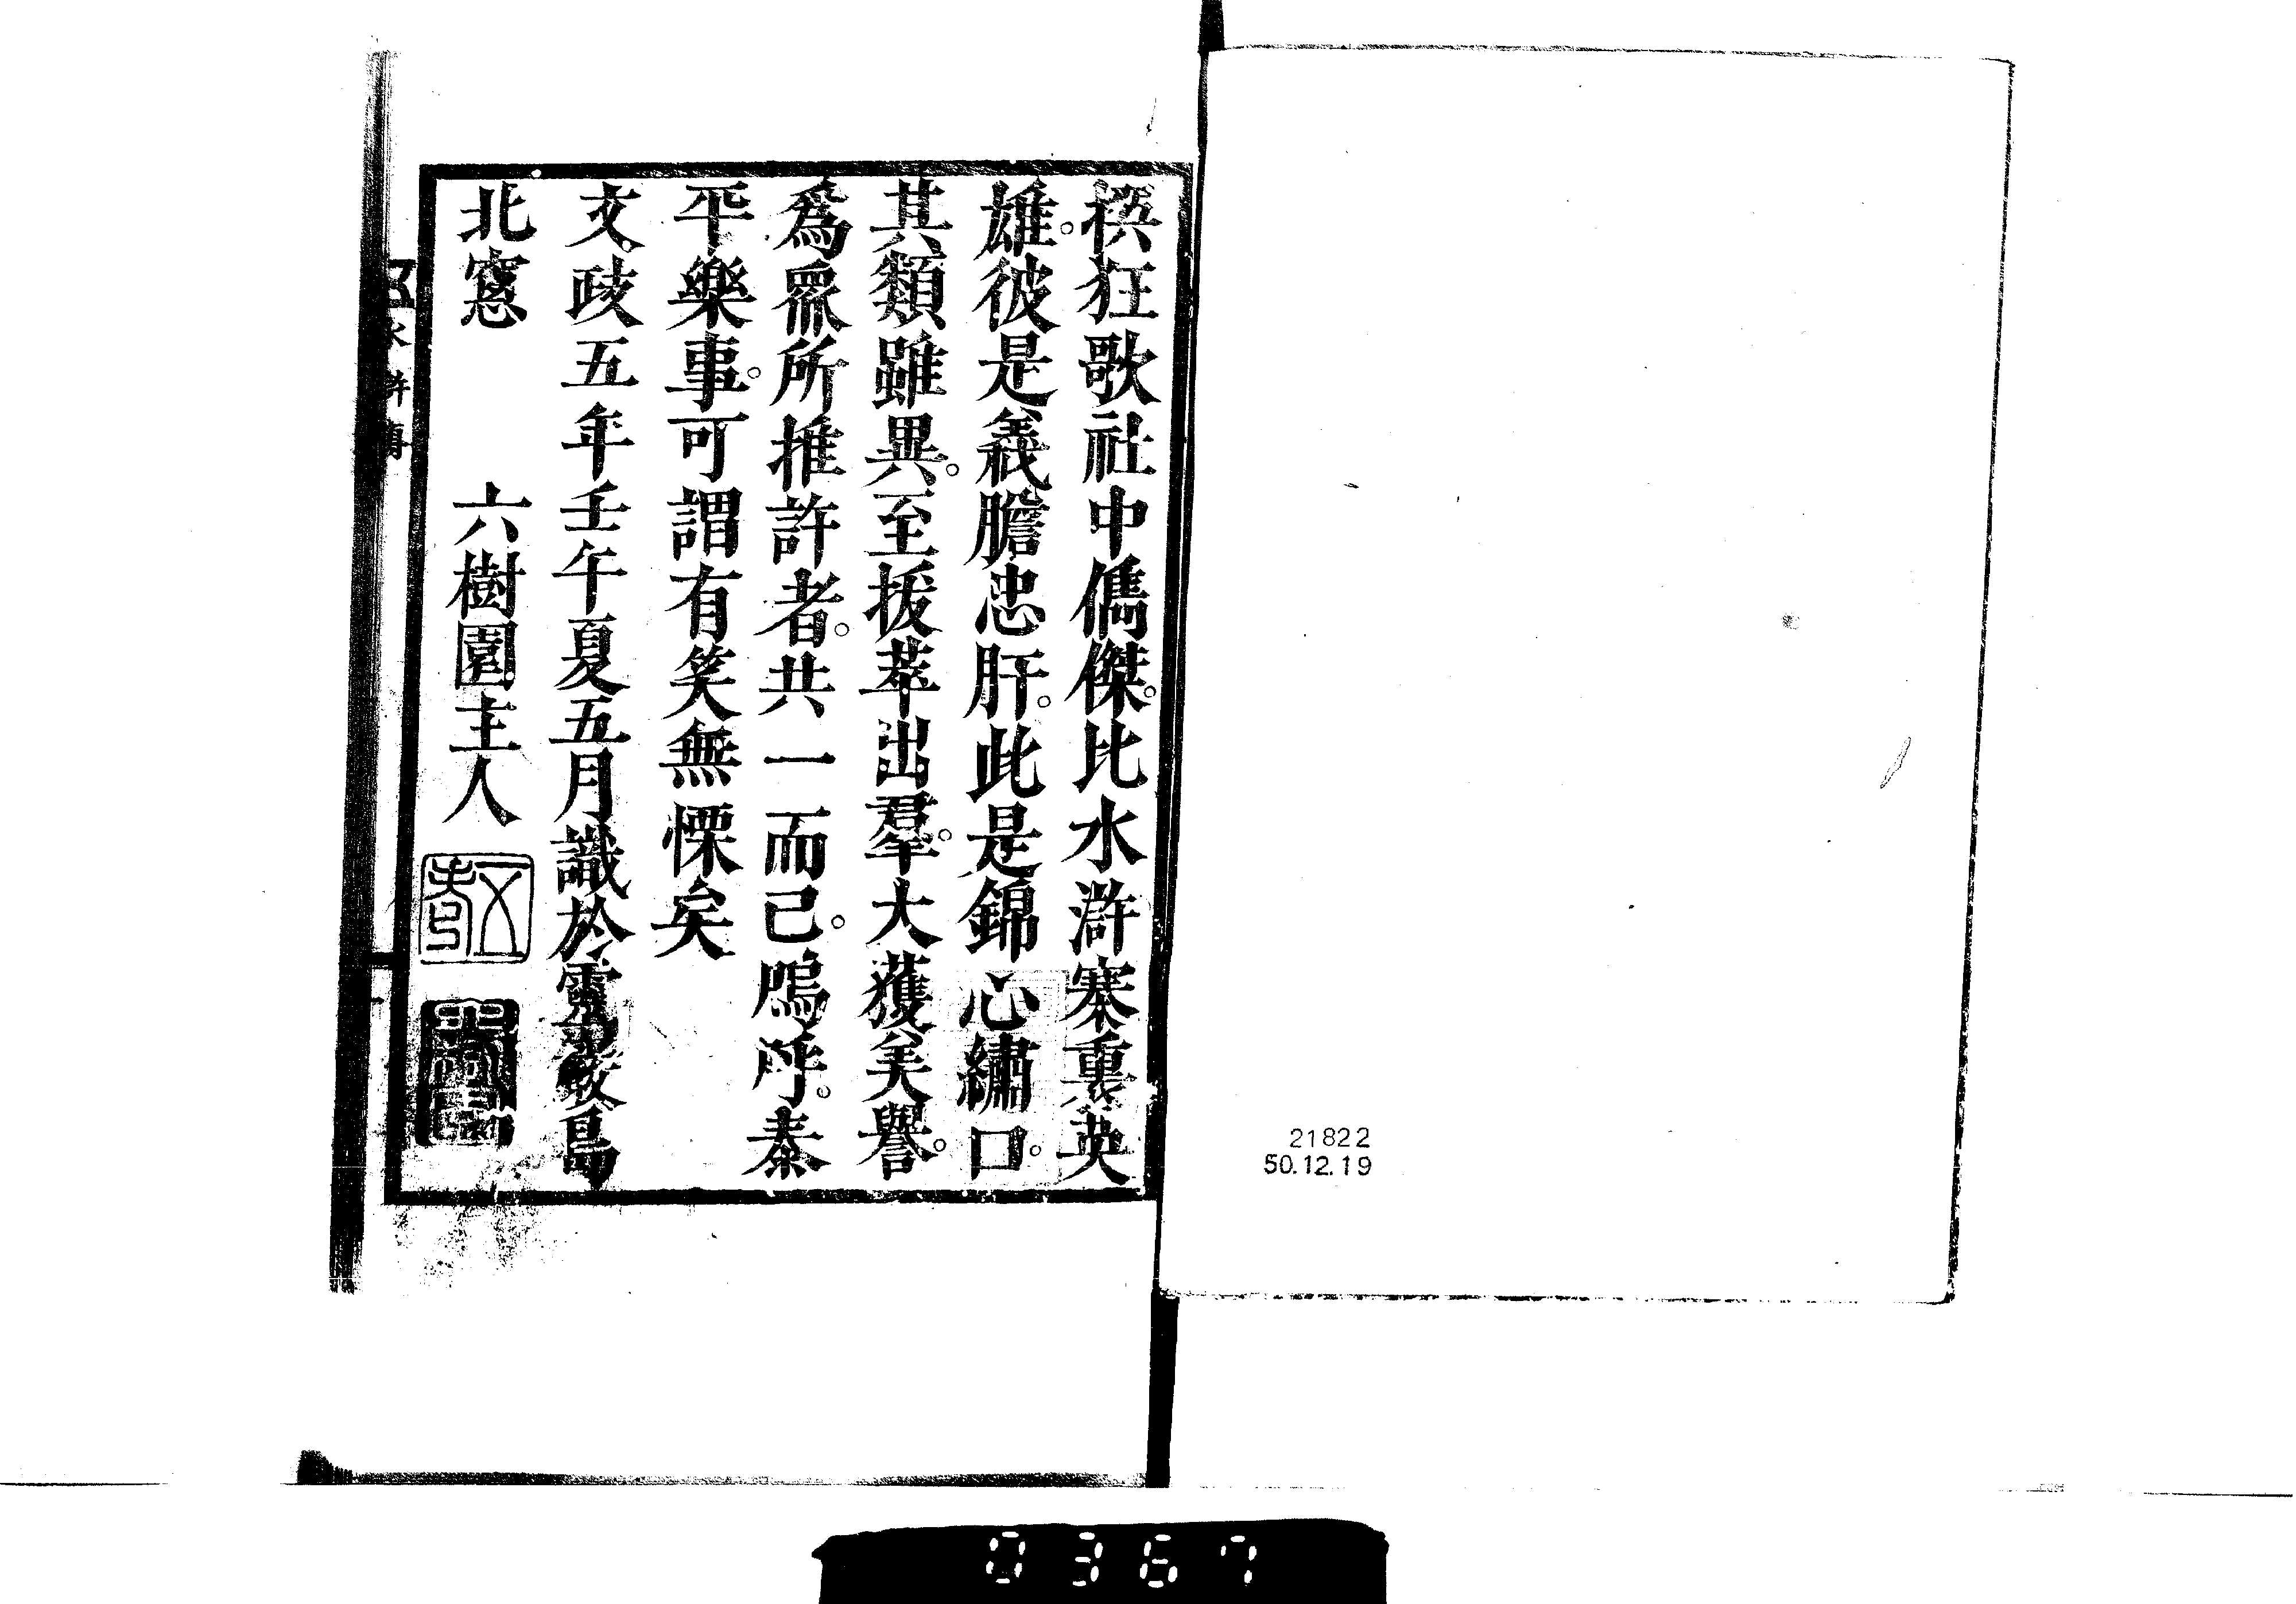 狂歌社中儁傑。比水滸寨裏英
雄。彼是義膽忠肝。此是錦心繡口。
其類雖異。至拔萃出羣。大獲美譽。
爲眾所推許者。共一而已。嗚呼。泰
平樂事。可謂有笑無慄矣
文政五年壬午夏五月識於靈䒳島
北窓 六樹園主人
水滸傳
21822
50.12.19
0367